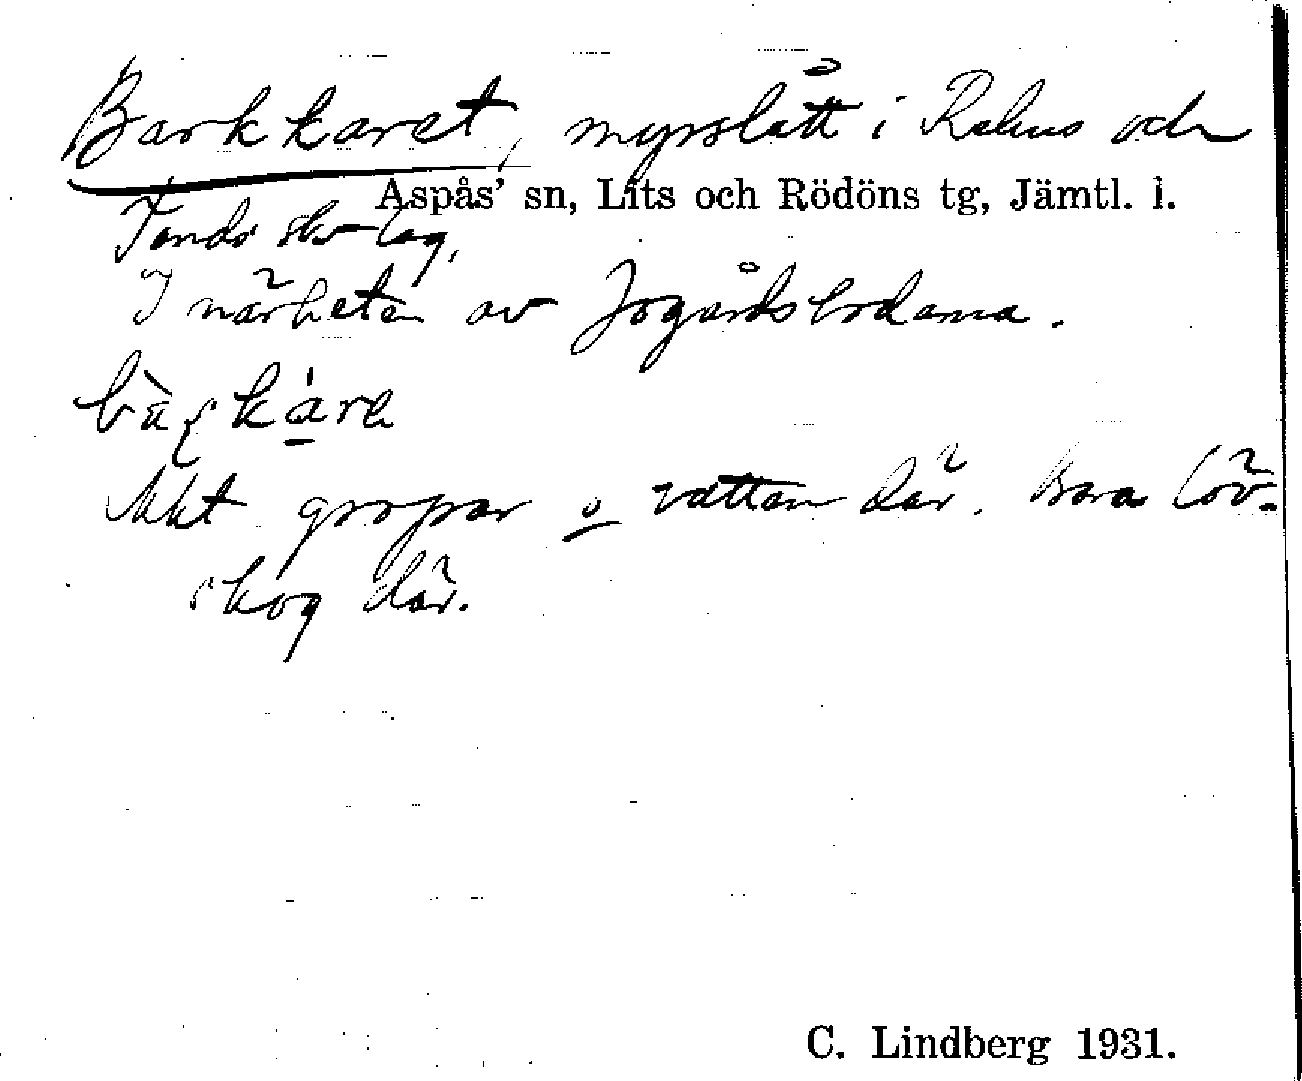 Barkkaret, myrslått i Rehus och
Aspås' sn, Lits och Rödöns tg, Jämtl. l.
skv lag.
I närheten av Jogårdsbodarna.
gropar o vatten där. Bara löv-
skog där.
C. Lindberg 1931.